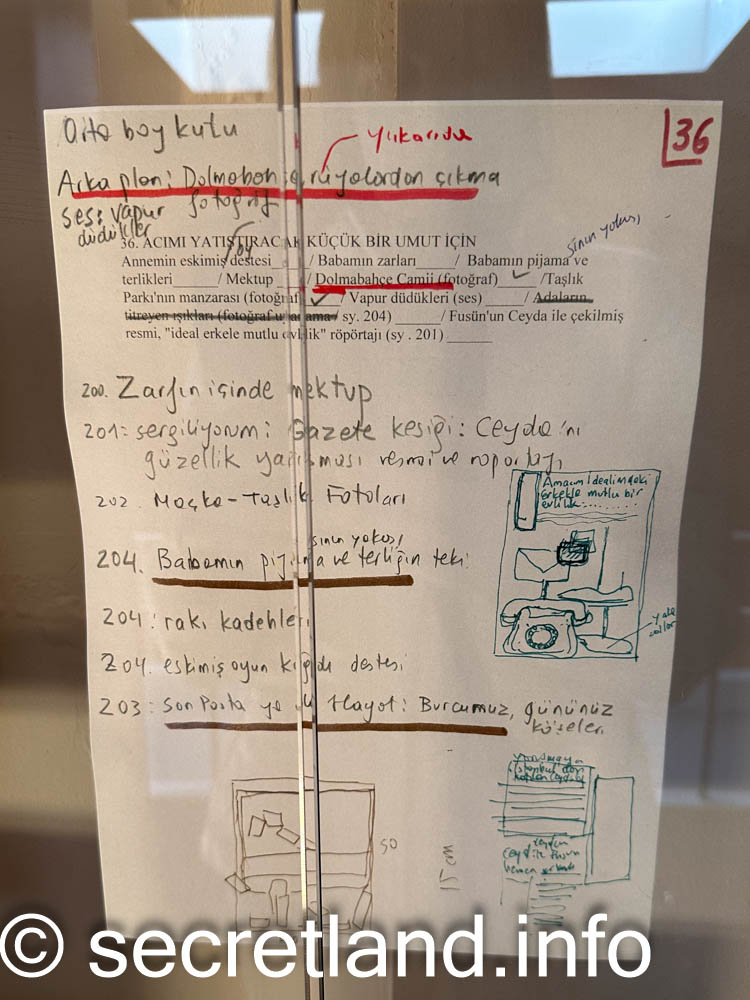 Orta boy kutu
36
yukarıda
Arka plan: Dolmabahçe rüyalardan çıkma
fotoğraf
ses: vapur
düdükler
36. ACIMI YATIŞTIRACAK KÜÇÜK BİR UMUT İÇİN
Annemin eskimiş destesi / Babamın zarları / Babamın pijama ve
sinin yokuşı
terlikleri / Mektup / Dolmabahçe Camii (fotoğraf) /Taşlık
Parkı'nın manzarası (fotoğraf) / Vapur düdükleri (ses) / Adaların
titreyen ışıkları (fotoğraf / sy. 204) / Fusün'un Ceyda ile çekilmiş
resmi, "ideal erkele mutlu evlilik" röportajı (sy . 201)
200. Zarfın içinde mektup
201: sergiliyorum: Gazete kesiği: Ceyda'nı
güzellik yarışması resmi ve roportajı
202. Maçka-Taşlık Fotoları
204. Babamın pijama ve terliğin teki
204: rakı kadehleri
204. eskimiş oyun kâğıdı destesi
203: Son Posta ya da Hayat: Burcumuz, gününüz
köşeleri
Amacım idealimdeki
erkekle mutlu bir
evlilik......
50
15 cm